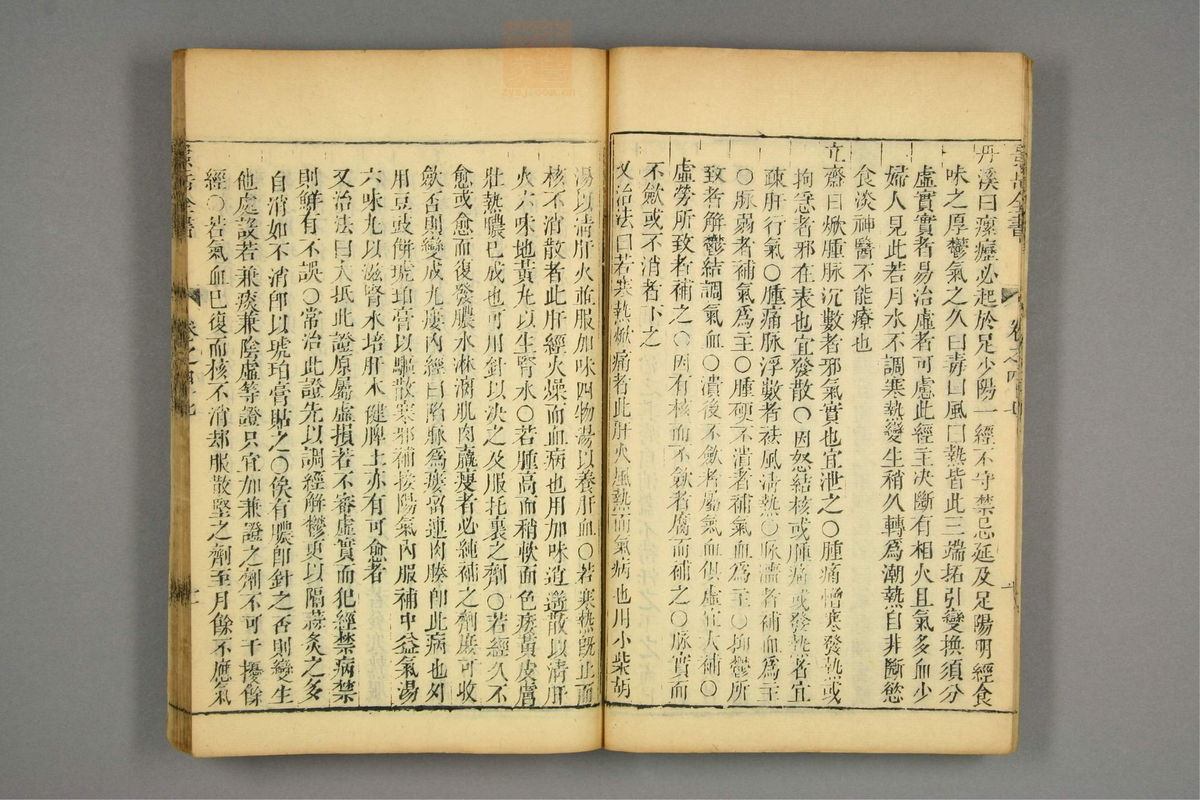 丹溪曰瘰癧必起於足少陽一經不守禁忌延及足陽明經食
味之厚鬱氣之久曰毒曰風曰熱皆此三端拓引變換須分
虛實實者易治虛者可慮此經主决斷有相火且氣多血少
婦人見此若月水不調寒熱變生稍久轉爲潮熱自非斷慾
食淡神醫不能療也
立齋曰焮腫脉沉數者邪氣實也宜泄之〇腫痛憎寒發熱或
拘急者邪在表也宜發散〇因怒結核或腫痛或發熱者宜
疎肝行氣〇腫痛脉浮數者祛風清熱〇脉濇者補血爲主
〇脉弱者補氣爲主〇腫硬不潰者補氣血爲主〇抑鬱所
致者解鬱結調氣血〇潰後不斂者屬氣血俱虛宜大補〇
虛勞所致者補之〇因有核而不斂者腐而補之〇脉實而
不斂或不消者下之
又治法曰若寒熱焮痛者此肝火風熱而氣病也用小柴胡
湯以清肝火並服加味四物湯以養肝血〇若寒熱旣止而
核不消散者此肝經火燥而血病也用加味逍遙散以清肝
火六味地黃丸以生腎水〇若腫高而稍軟面色痿黃皮膚
壯熱膿已成也可用針以决之及服托裏之劑〇若經久不
愈或愈而復發膿水淋漓肌肉羸瘦者必純補之劑庶可收
斂否則變成九瘻內經曰陷脉爲瘻留連肉腠卽此病也外
用豆豉餅琥珀膏以驅散寒邪補接陽氣內服補中益氣湯
六味丸以滋腎水培肝木健脾土亦有可愈者
又治法曰大抵此證原屬虛損若不審虛實而犯經禁病禁
則鮮有不誤〇常治此證先以調經解鬱更以隔蒜灸之多
自消如不消卽以琥珀膏貼之〇俟有膿卽針之否則變生
他處設若兼痰兼陰虛等證只宜加兼證之劑不可干擾餘
經〇若氣血已復而核不消却服散堅之劑至月餘不應氣
景岳全書
卷之四十七
景岳全書